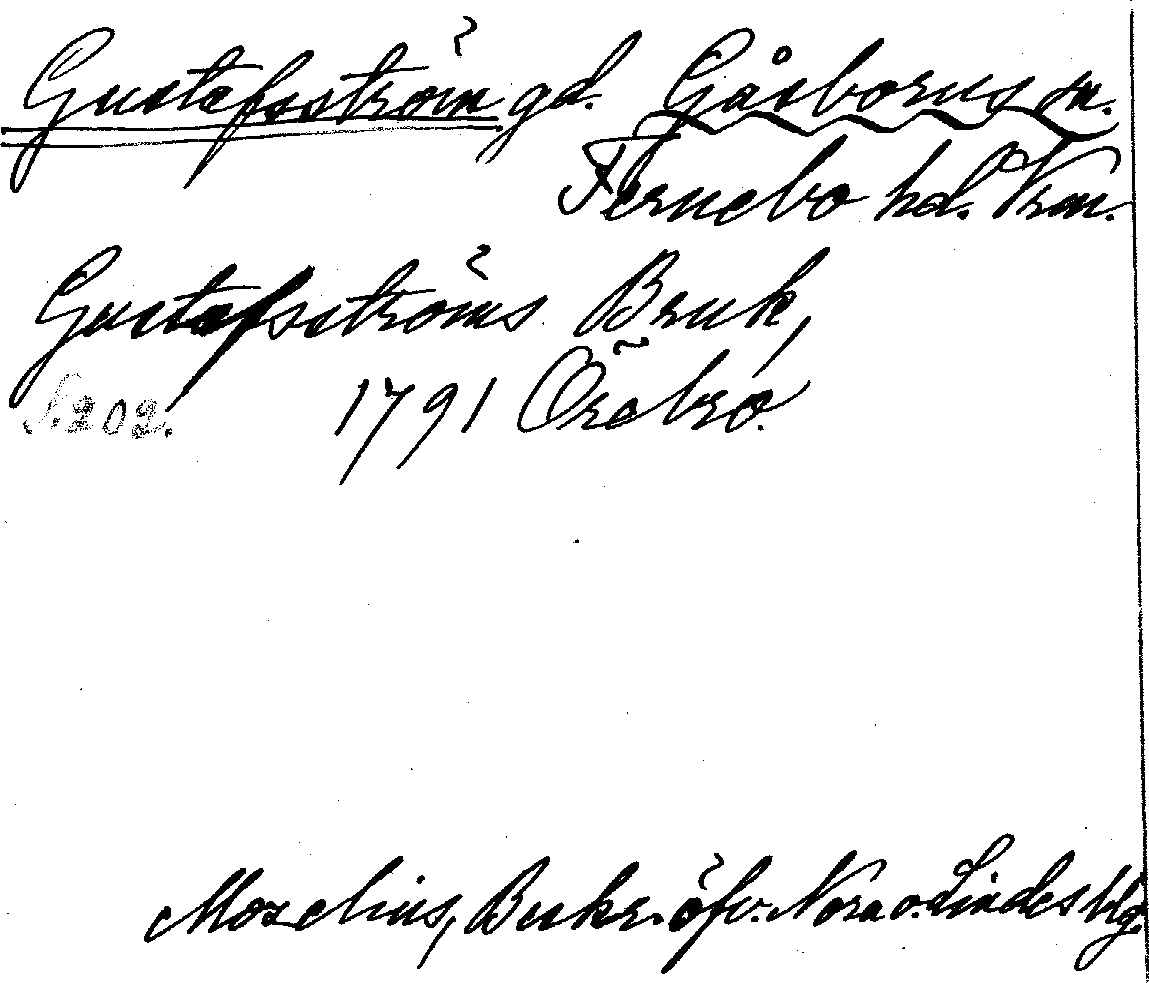 Gustafsström gd. Gåsborns sn.
Fernebo hd. Vrm.
Gustafsströms Bruk,
S. 202. 1791 Örebro.
Mozelius, Beskr. öfv. Nora o. Lindes blg.